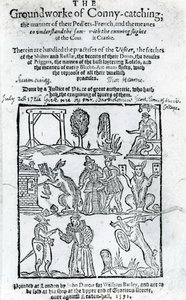 THE
Groundworke of Conny-catching;
the manner of their Pedlers-French, and the meanes
to understand the same: with the cunning slights
of the Coun Cranke.
Therein are handled the practises of the Visiter, the fetches
of the Shifter and Rufflar, the deceits of their Doxes, the devises
of Priggers, the names of the base loytering Losels, and
the meanes of every Blacke-Art-mans shifts, with
the reproofe of all their divellish
practises.
Done by a Justice of Peace of great authoritie, who hath
had the examining of divers of them.
July
Printed at London by John Danter for William Barley, and are
to be sold at his shop at the upper end of Gratious streete,
over against Leaden-hall, 1592.